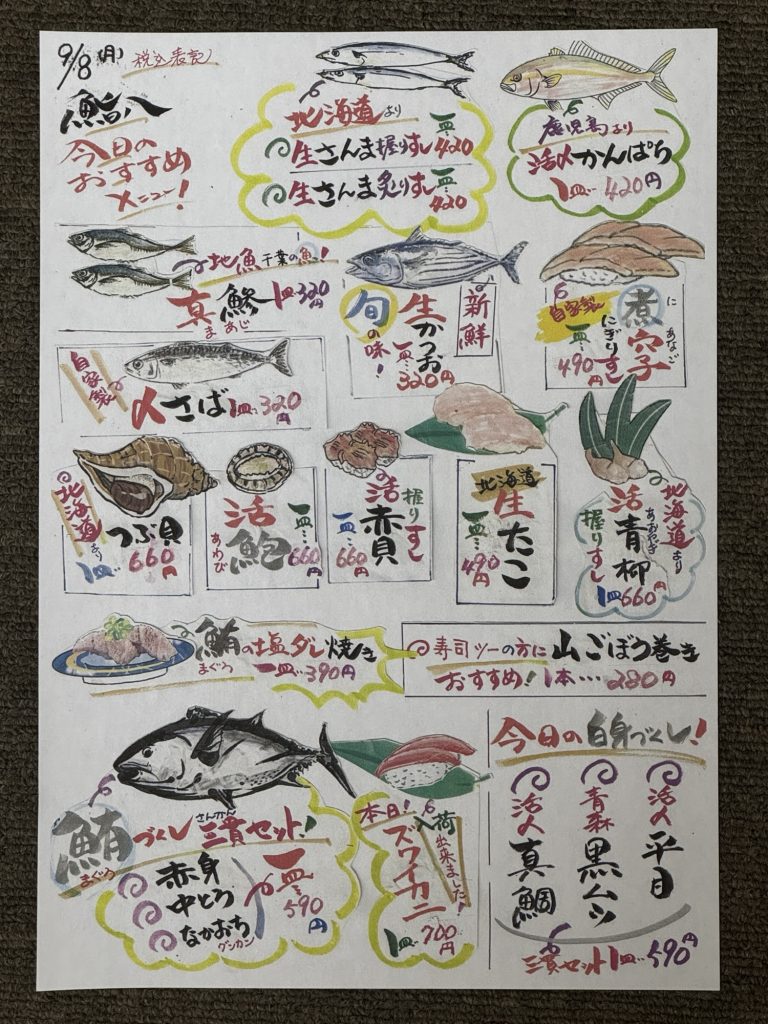 9/8(月) 税込表記
鮨八
今日の
おすすめ
メニュー!
北海道より
生さんま握りすし 一皿…420
生さんま炙りすし 一皿…420
鹿児島より
活〆かんぱち
1皿…420円
地魚 千葉の魚!
真鯵 1皿…320円
まあじ
旬の味!
生かつお
一皿…320円
新鮮
自家製
煮穴子
に あなご
にぎりすし
一皿…490円
自家製
〆さば 1皿…320円
北海道より
つぶ貝
1皿…660円
活鮑
あわび
一皿…660円
活赤貝
握りすし
一皿…660円
北海道
生たこ
一皿…490円
北海道より
活青柳
あおやぎ
握りすし
1皿660円
鮪の塩ダレ焼き
まぐろ
一皿…390円
寿司ツーの方に 山ごぼう巻き
おすすめ! 1本…280円
鮪づくし 三貫セット!
まぐろ さんかん
赤身
中とろ
なかおち
グンカン
一皿…590円
本日!
入荷出来ました!
ズワイカニ
1皿…700円
今日の白身づくし!
活〆平目
青森黒ムツ
活〆真鯛
三貫セット1皿…590円